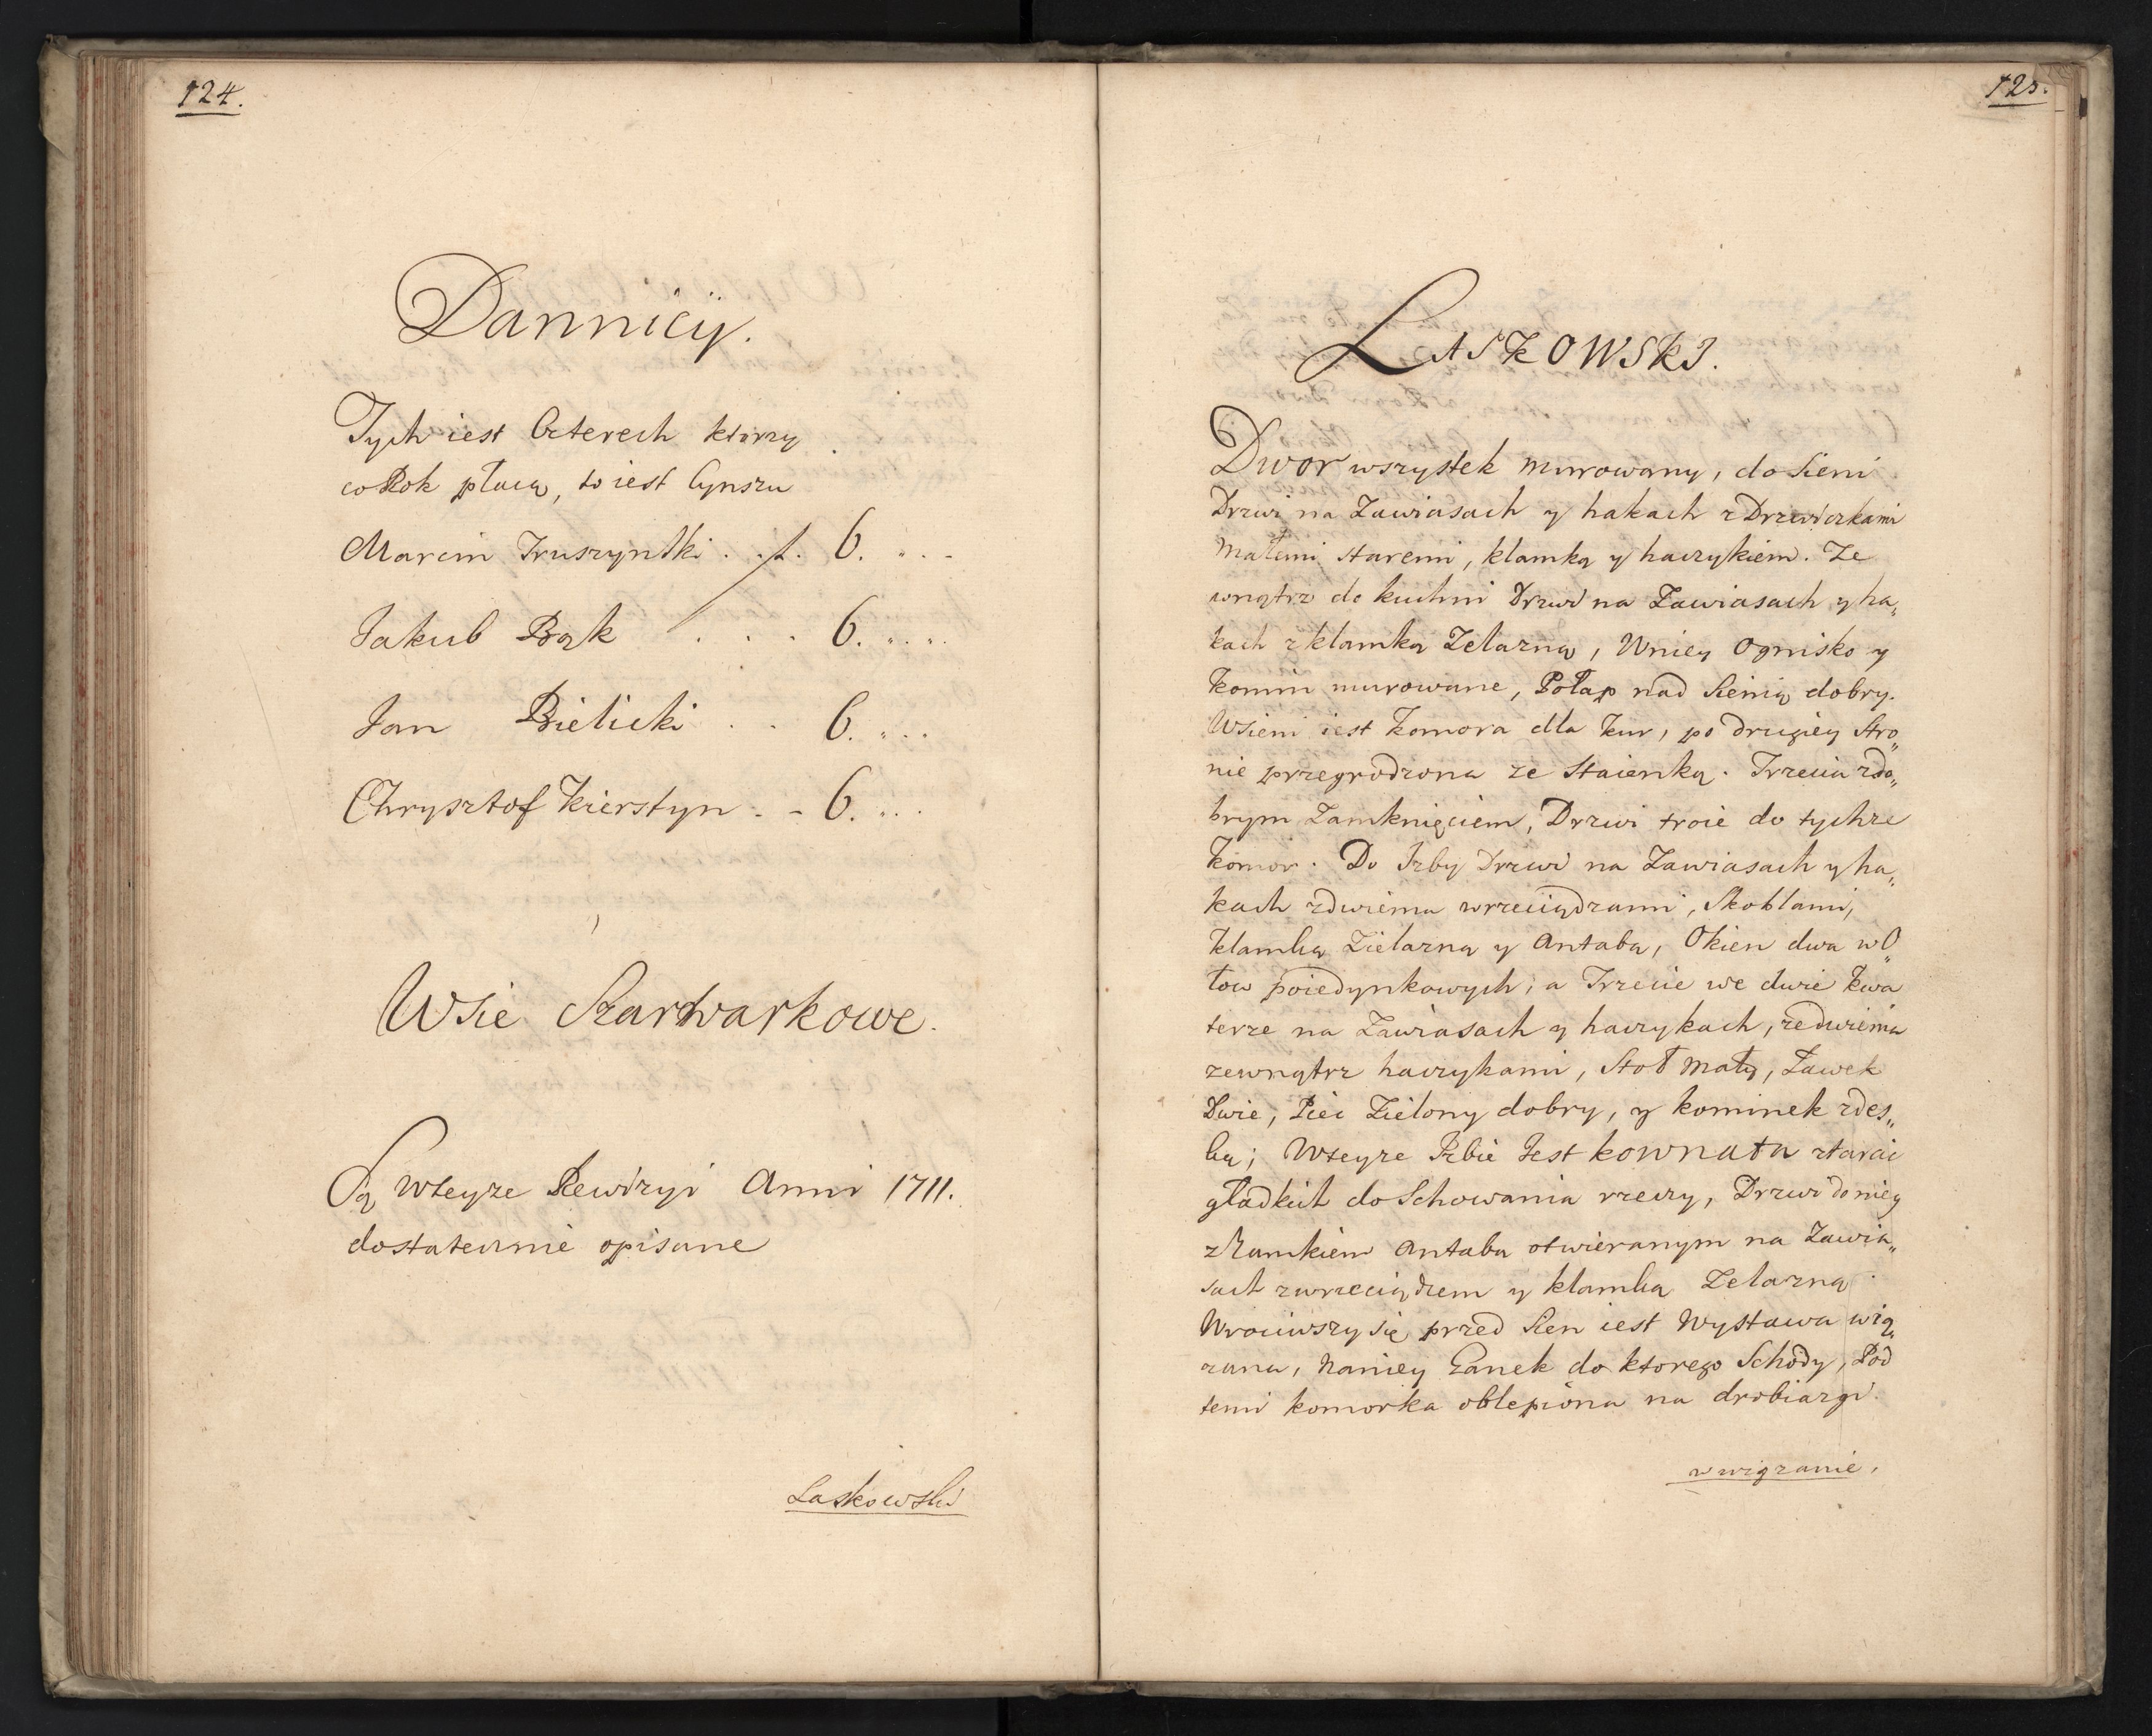 124.
Dannicÿ.
Tych iest Czterech ktorzy
co Rok płacą, to iest Czynszu
Marcin Truszynski . . f. 6. " . -
Jakub Bąk . . . 6. " . "
Jan Bielicki . . 6. " . .
Chrysztof Kierstyn . - 6. " . .
Wsie Szarwarkowe.
Są wteyże Rewizyi Anni 1711.
dostatecznie opisane
Laskowski
125.
LASKOWSKI.
Dwor wszystek murowany, do Sieni
Drzwi na Zawiasach y hakach z Drzwiczkami
małemi staremi, klamką y haczykiem. Ze
wnątrz do kuchni Drzwi na Zawiasach y ha„
kach z klamką Zelazną, Wniey Ognisko y
Komin murowane, Połap nad Sienią dobry.
Wsieni iest Komora dla Kur, po drugiey Stro„
nie przegrodzona ze Staienką. Trzecia zdo„
brym Zamknięciem, Drzwi troie do tychże
Komor. Do Izby Drzwi na Zawiasach y ha„
kach zdwiema wrzeciądzami, Skoblami,
Klamką Zielazną y Antaba, Okien dwa wO„
łow poiedynkowych; a Trzecie we dwie Kwa
terze na Zawiasach y haczykach, zedwiema
zewnątrz haczykami, Stoł mały, Ławek
Dwie, Piec Zielony dobry, y kominek zdes„
ką; Wteyże Izbie Jest kownata ztarcic
gładkich do Schowania rzeczy, Drzwi do niey
z Zamkiem Antaba otwieranym na Zawia„
sach zwrzeciądzem y klamką Zelazną
Wrociwszy się przed Sien iest Wystawa wią„
zana, Naniey Ganek do ktorego Schody, Pod
temi komorka oblepiona na drobiazgi.
w wiązanie,